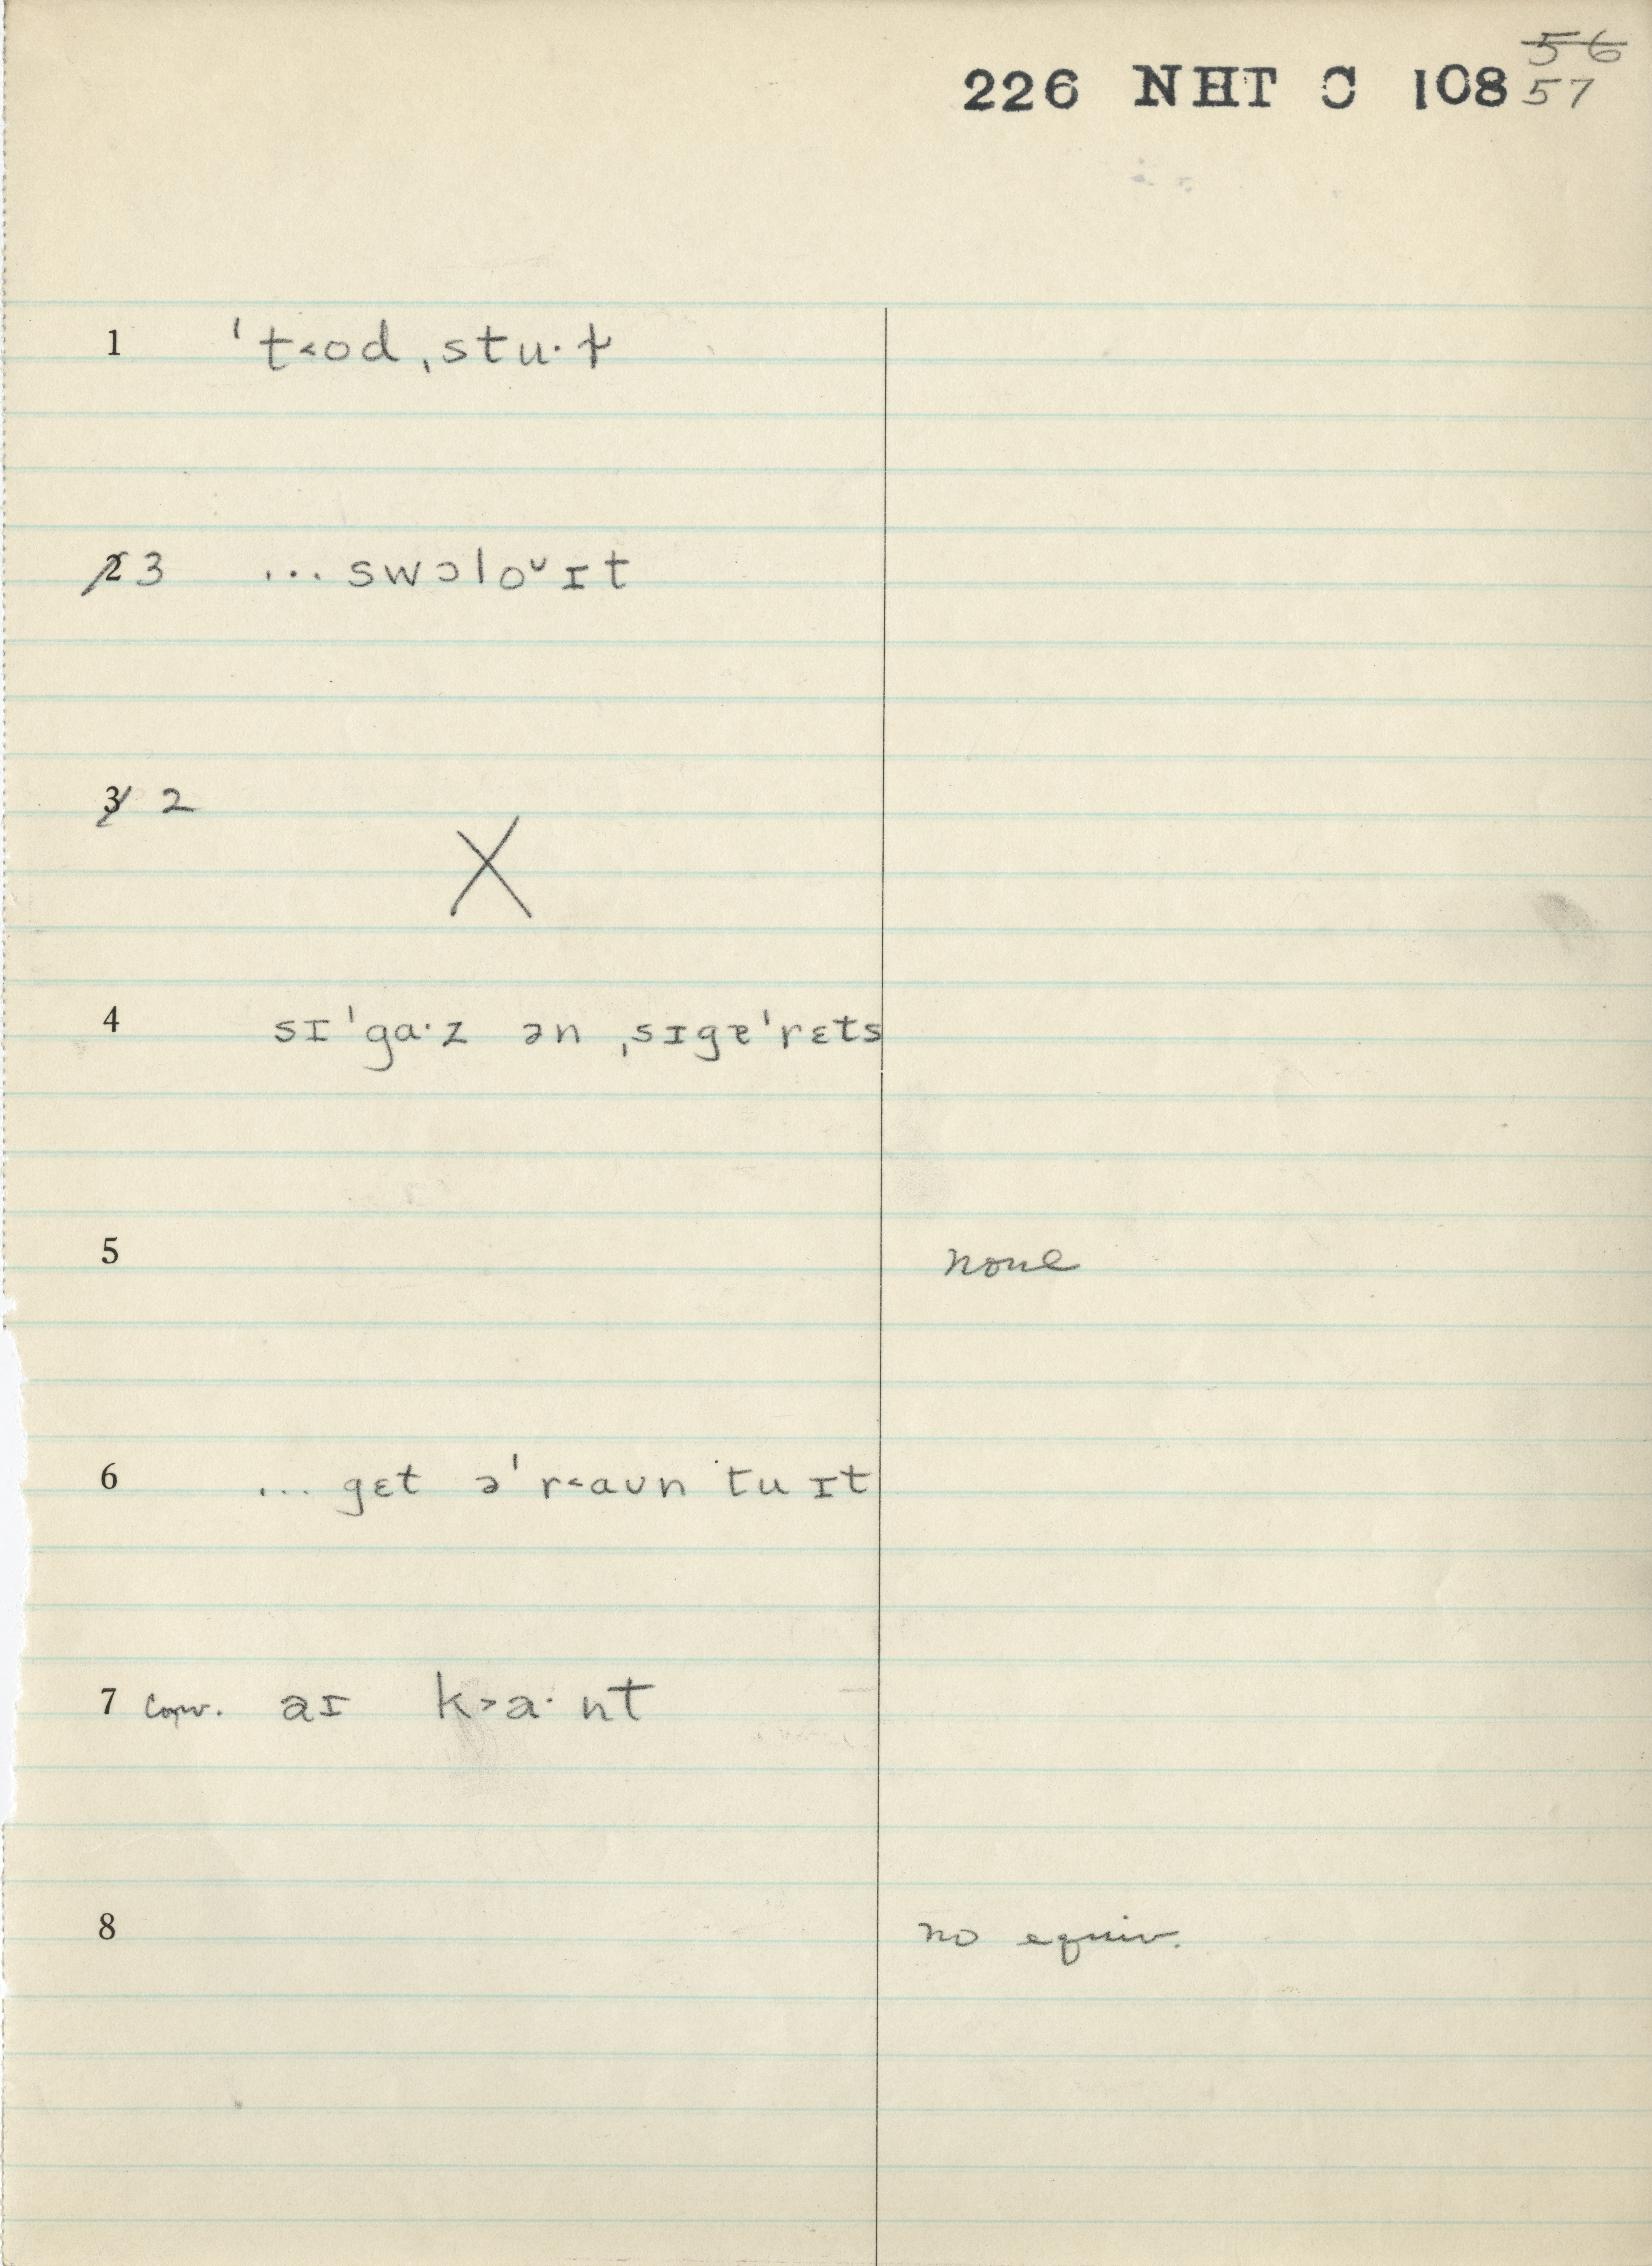 56
226 NHT C 108 57
1 ˈt˂od ˌstu·ɫ
2 3 ... swɔloᵛ ɪt
3 2
X
4 sɪˈga·z ən ˌsɪgɐˈrɛts
5 none
6 ... gɛt əˈr˂aʊn tu ɪt
7 conv. aɪ k˃a·nt
8 no equiv.